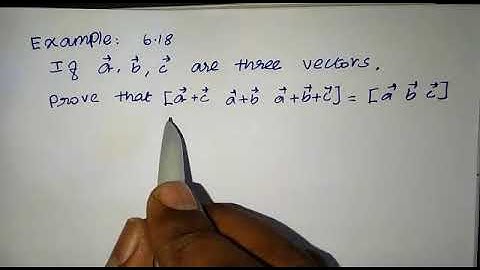 Example: 6.18
If a⃗, b⃗, c⃗ are three vectors.
Prove that [a⃗+c⃗ a⃗+b⃗ a⃗+b⃗+c⃗] = [a⃗ b⃗ c⃗]